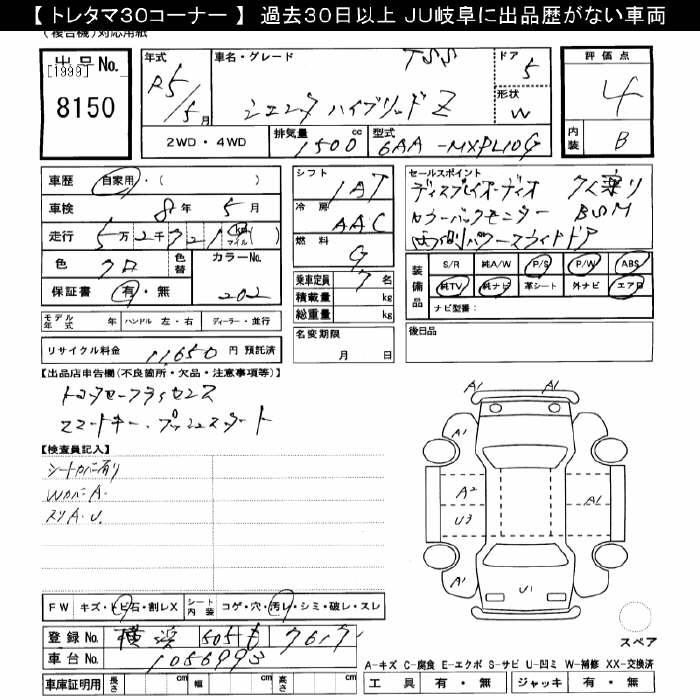 【 トレタマ30コーナー 】 過去30日以上 JU岐阜に出品歴がない車両
(複合機)対応用紙
出品No.
[1999]
8150
年式
R5/5月
車名・グレード
TSS
シエンタ ハイブリッド Z
ドア
5
形状
W
評価点
4
内装
B
2WD・4WD
排気量
1500cc
型式
6AA-MXPL10G
車歴
自家用・( )
車検
8年 5月
走行
5万2千721km マイル ( )
色
クロ
色替
カラーNo.
202
保証書
有・無
モデル年式 年
ハンドル 左・右
ディーラー・並行
リサイクル料金 11,650 円 預託済
シフト
IAT
冷房
AAC
燃料
G
乗車定員 7名
積載量 kg
総重量 kg
名変期限
月 日
セールスポイント
ディスプレイオーディオ 7人乗り
カラーバックモニター BSM
両側パワースライドドア
装備品
S/R 純A/W P/S P/W ABS
純TV 純ナビ 革シート 外ナビ エアB
ナビ型番:
後日品
【出品店申告欄(不良箇所・欠品・注意事項等)】
トヨタセーフティセンス
スマートキー・プッシュスタート
【検査員記入】
シートカバー有り
Wカバー A.
スリA.U.
A1
A1
A1
A1
A2
U3
A1
A1
U1
スペア
FW
キズ・トビ石・割レX
シート内装
コゲ・穴・汚レ・シミ・破レ・スレ
登録No.
横浜 505 も
車台No.
車庫証明用
長さ cm
幅 cm
高さ cm
A-キズ C-腐食 E-エクボ S-サビ U-凹ミ W-補修 XX-交換済
工具 有・無
ジャッキ 有・無